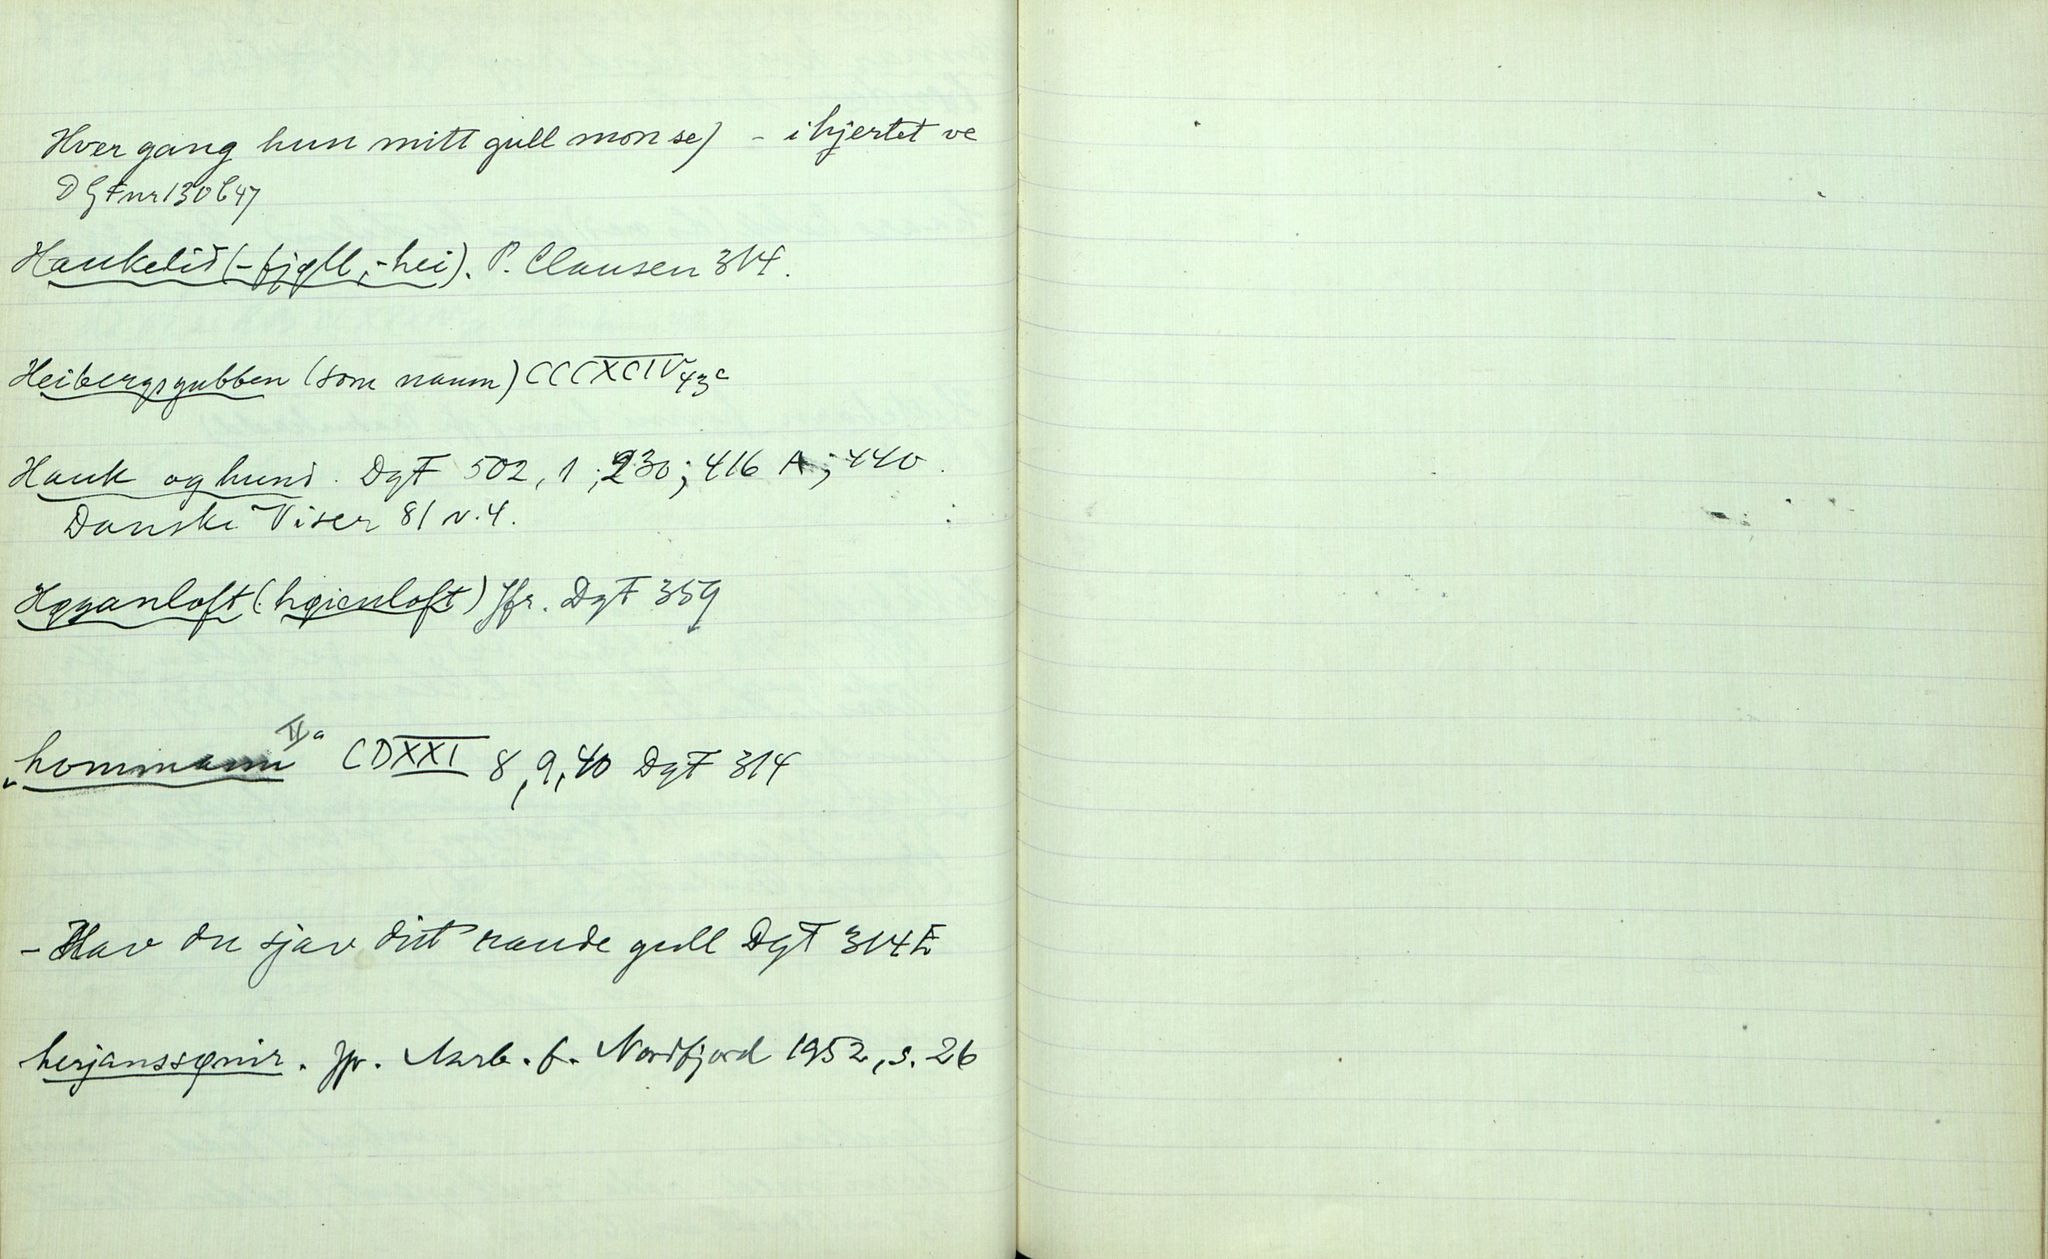 Hver gang hun mitt gull mon se) - i hjertet ve
DgF nr 130 C 47
Haukelid (-fjøll, -hei). P. Clausen 314.
Heibergsgubben (som naum) CCCXCIV 43 c
Hauk og hund. DgF 502, 1; 230; 416 A; 440.
Danske Viser 81 v. 4.
Høyanloft (høienloft) Jfr. DgF 359
hommann II a CDXXI 8, 9, 40 DgF 314
- Hav du sjav ditt raude gull DgF 314 E
herjanssønir. Jfr. Aarb. f. Nordfjord 1952, s. 26